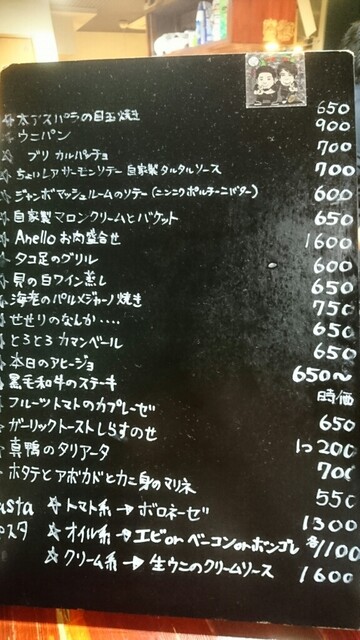 ☆ 太アスパラの目玉焼き 650
☆ ウニパン 900
☆ ブリ カルパッチョ 700
☆ ちょいレアサーモンソテー 自家製タルタルソース 700
☆ ジャンボマッシュルームのソテー(ニンニクポルチーニバター) 600
☆ 自家製マロンクリームとバケット 650
☆ Anello お肉盛合せ 1600
☆ タコ足のグリル 600
☆ 貝の白ワイン蒸し 650
☆ 海老のパルメジャーノ焼き 750
☆ せせりのなんか・・・・ 650
☆ とろとろカマンベール 650
☆ 本日のアヒージョ 650〜
黒毛和牛のステーキ 時価
フルーツトマトのカプレーゼ 650
ガーリックトーストしらすのせ 1つ200
真鴨のタリアータ 700
ホタテとアボカドとカニ身のマリネ 550
asta ☆ トマト系 → ボロネーゼ 1300
スタ ☆ オイル系 → エビ or ベーコン or ボンゴレ 各1100
☆ クリーム系 → 生ウニのクリームソース 1600